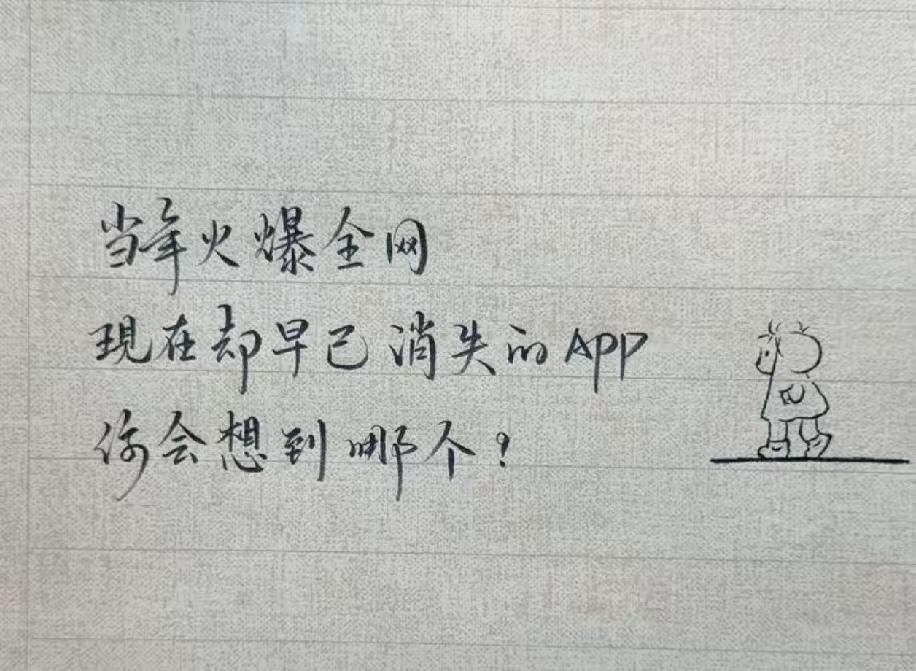 当年火爆全网
现在却早已消失的APP
你会想到哪个?